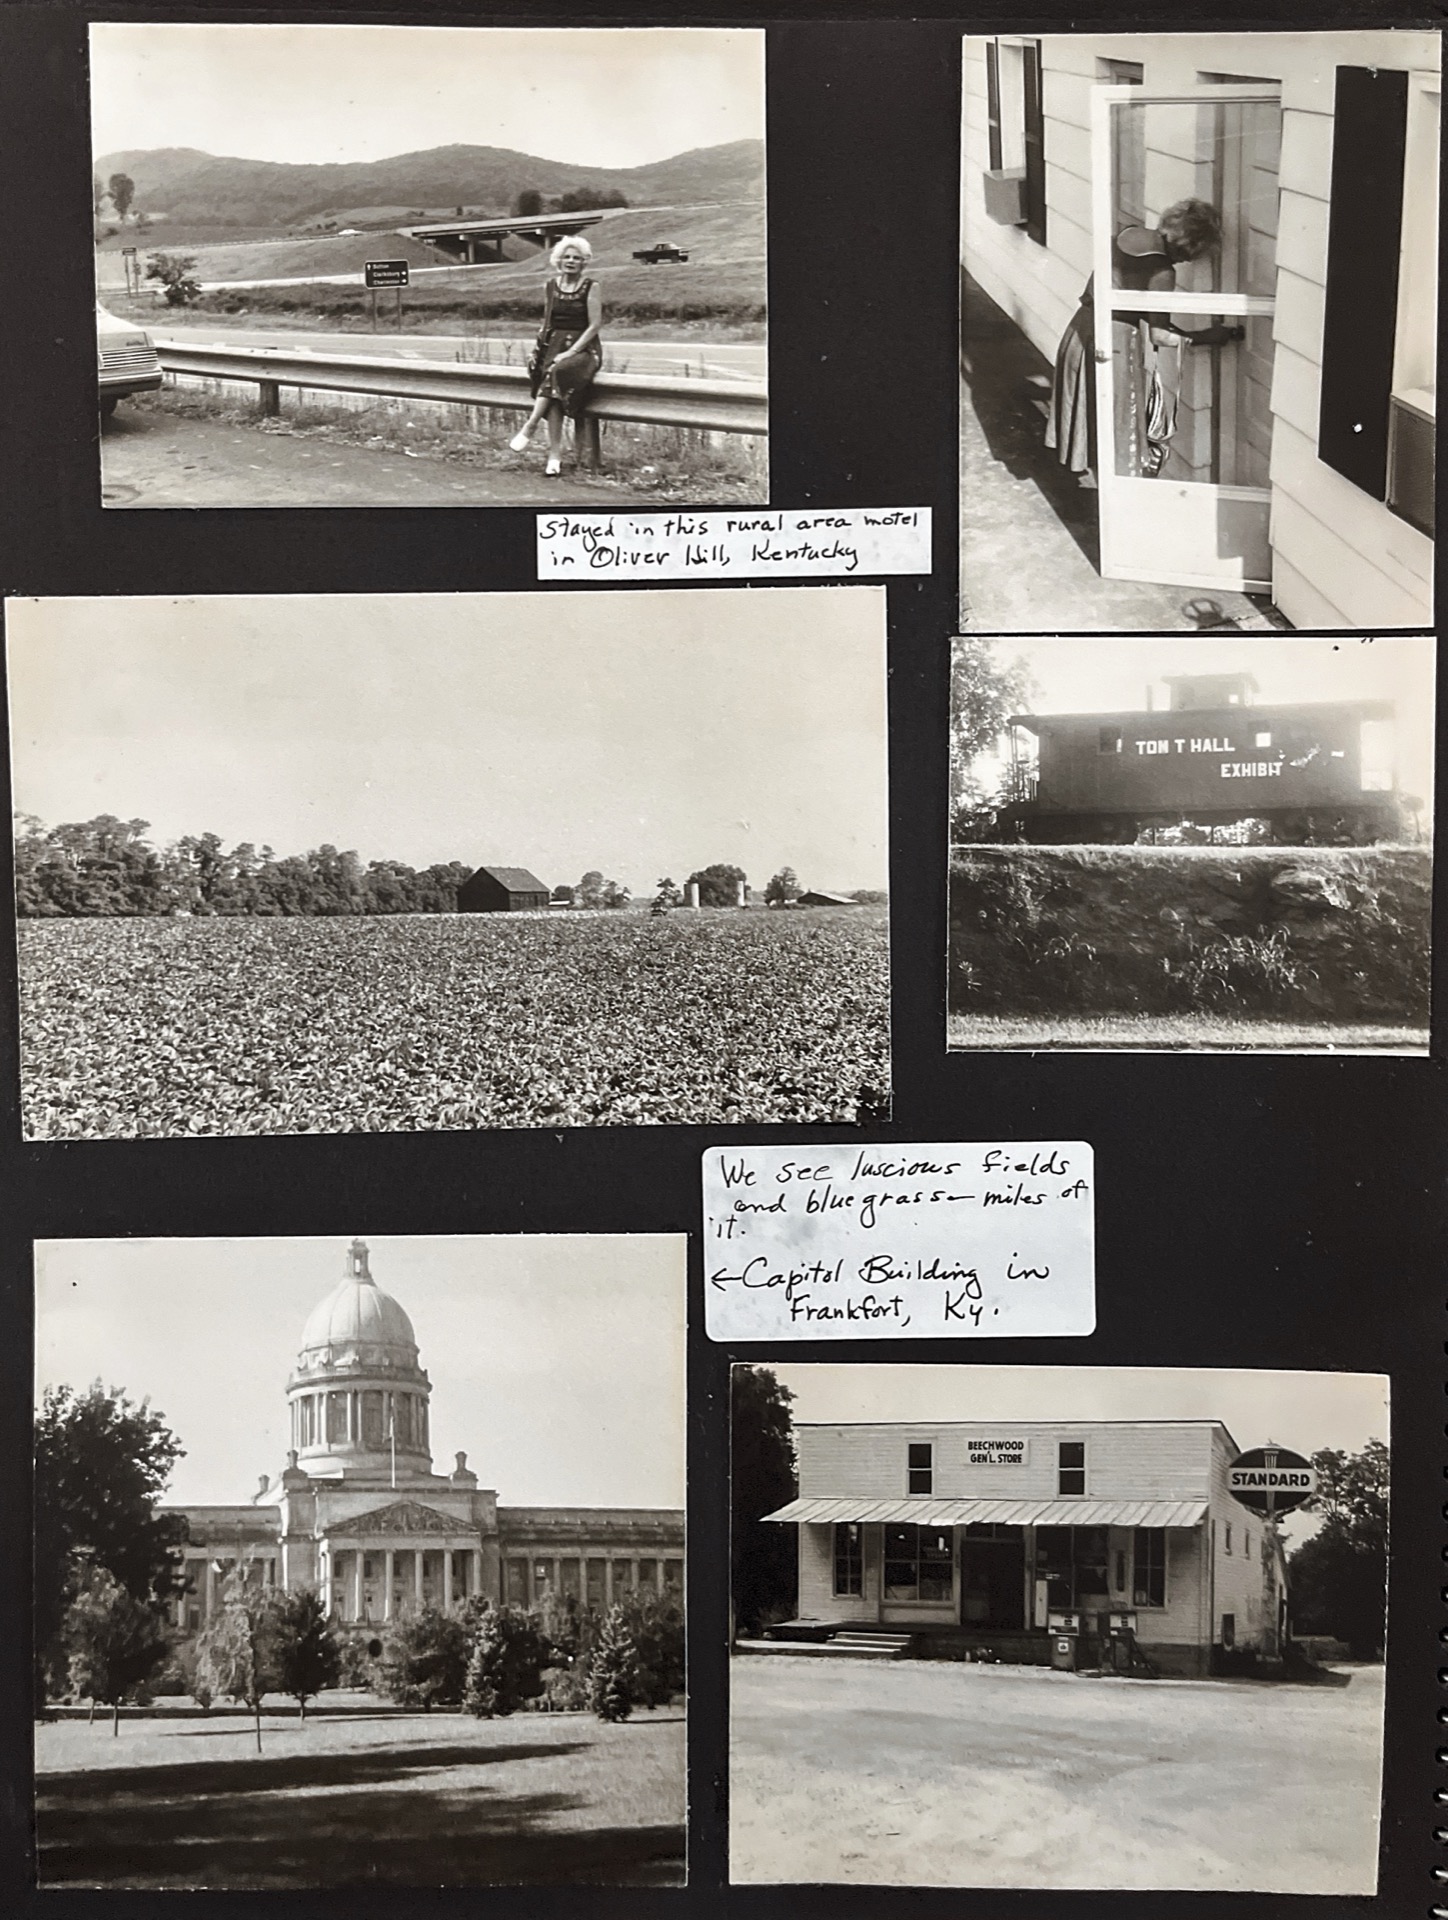 Sutton
Clarksburg
Charleston
Stayed in this rural area motel
in Oliver Hill, Kentucky
TOM T HALL
EXHIBIT
We see luscious fields
and bluegrass— miles of
it.
←Capitol Building in
Frankfort, Ky.
BEECHWOOD
GEN'L. STORE
STANDARD